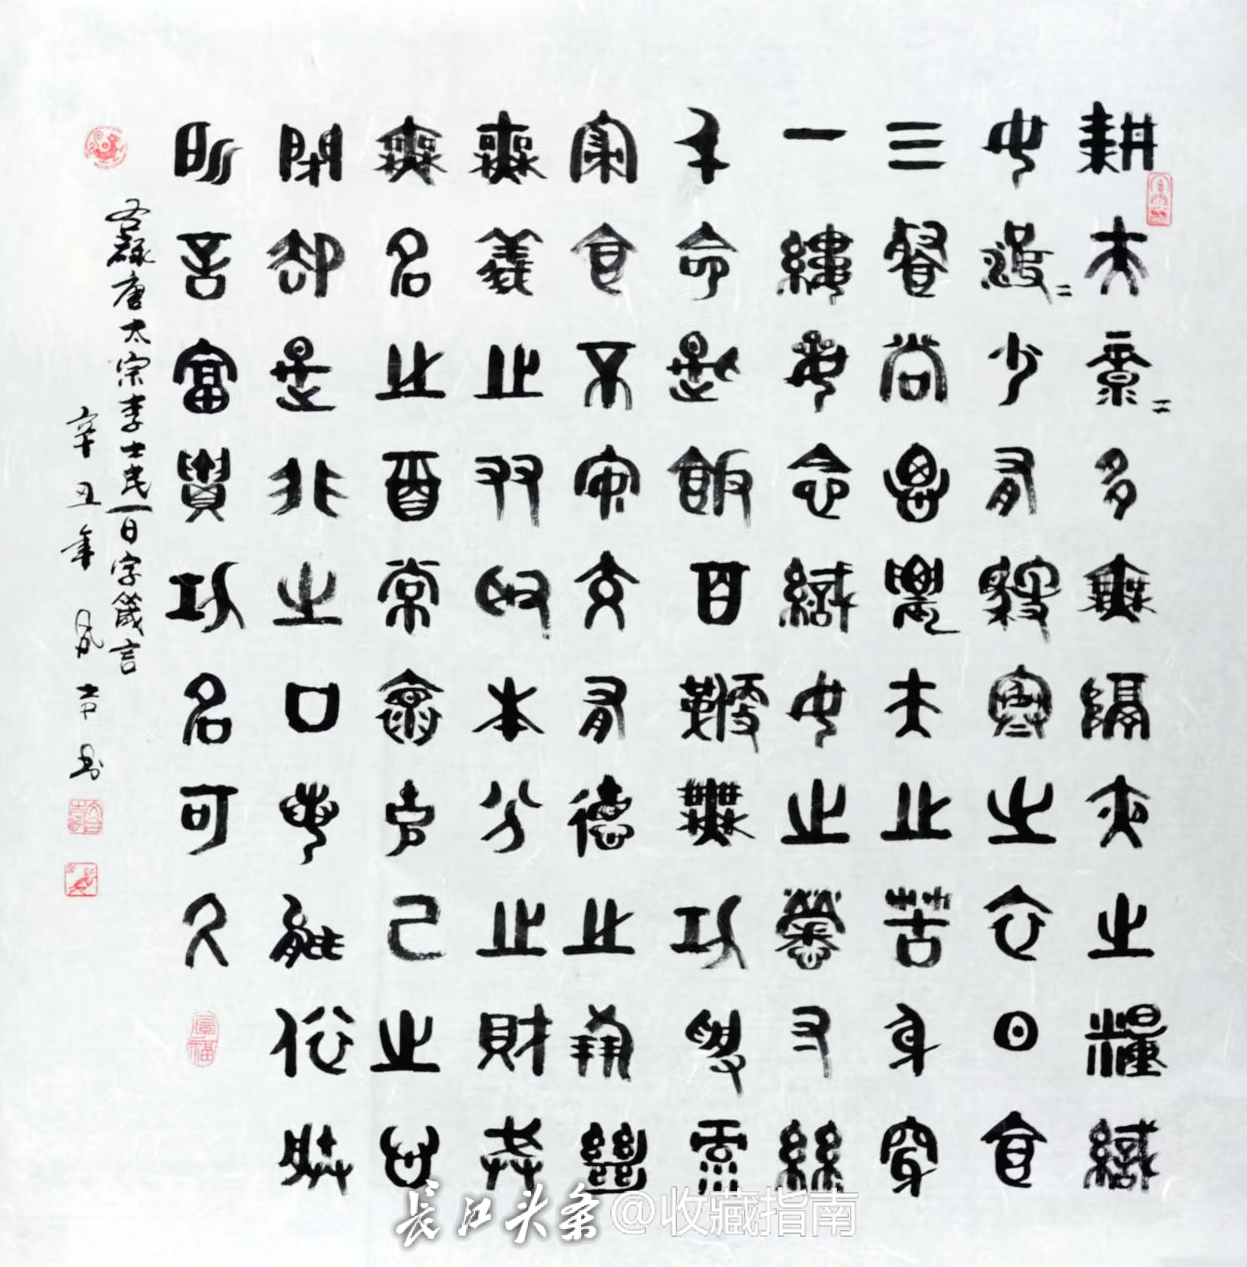 耕夫碌〻多無隔夜之糧織
女波〻少有禦寒之衣日食
三餐尚思農夫之苦身穿
一縷每念織女之勞寸絲
千命匙飯百鞭無功受祿
寢食不安交有德之朋絕
無義之友取本分之財戒
無名之酉常懷克己之心
閉却是非之口若能依朕
所言富貴功名可久
右録唐太宗李士民百字箴言
辛丑年
长江头条 @收藏指南